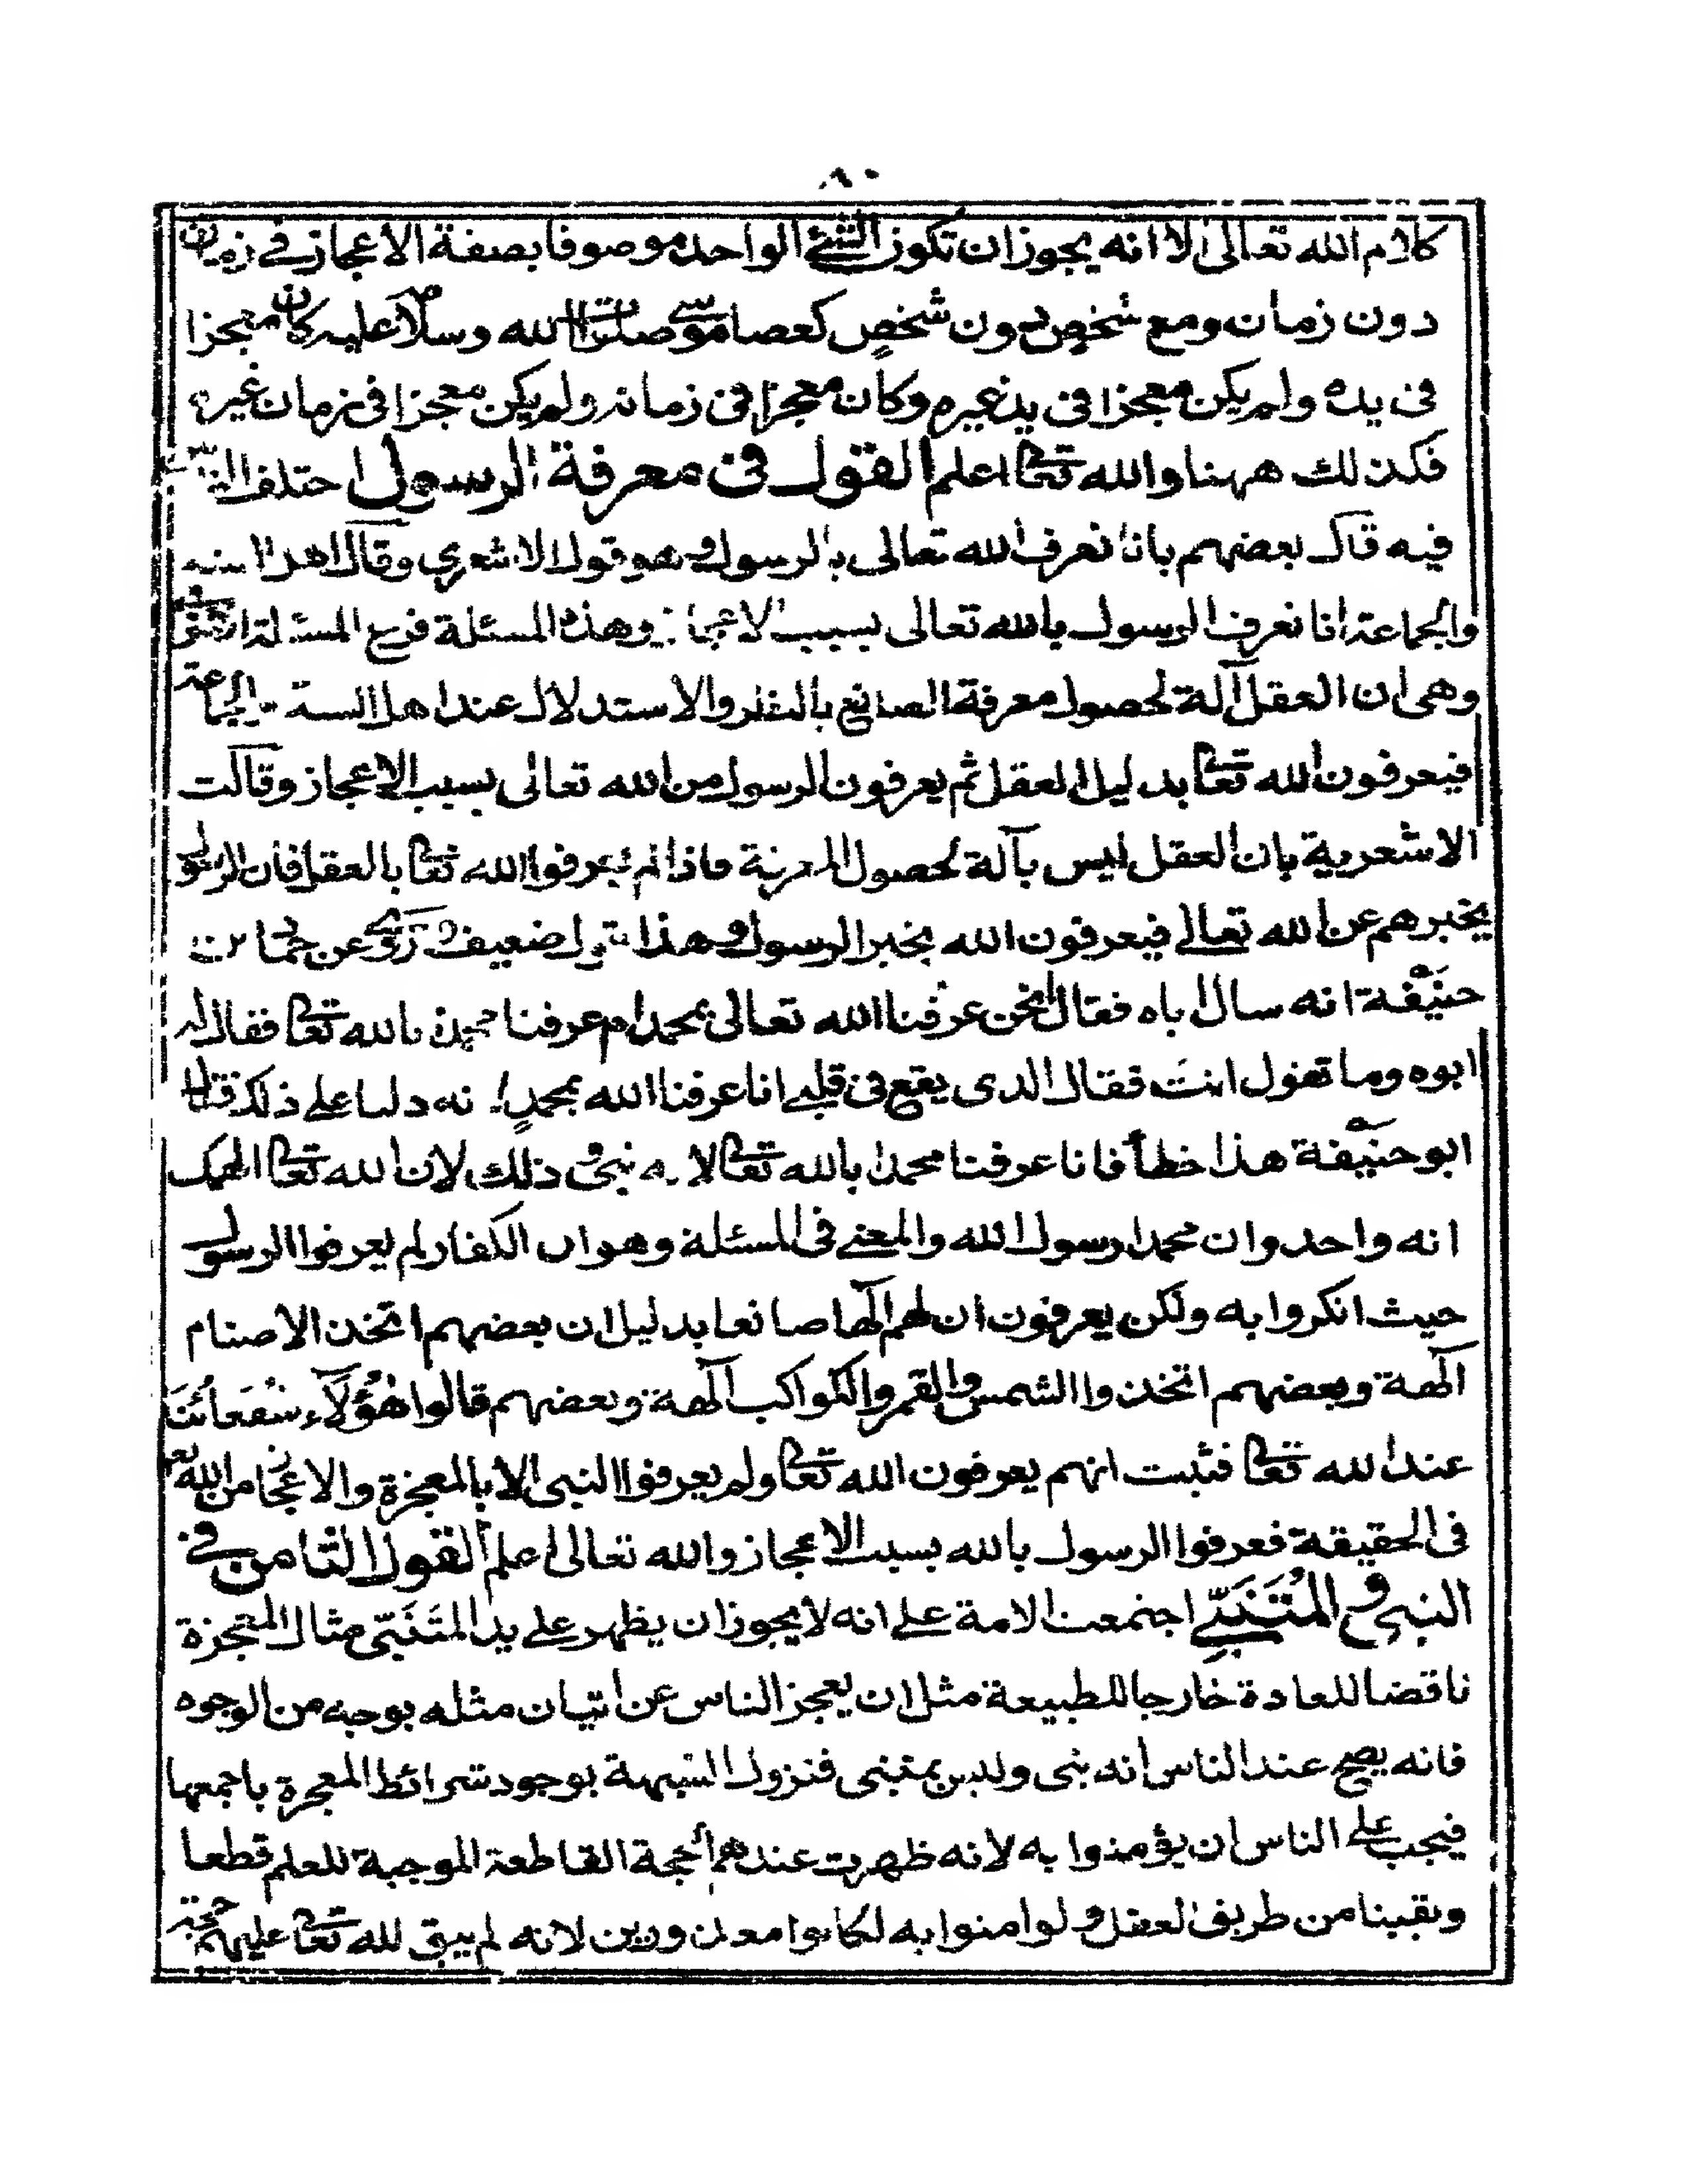 ٨٠
كلام الله تعالى لا انه يجوز ان تكون الشئ الواحد موصوفا بصفة الاعجاز فى زمان
دون زمان ومع شخص دون شخص كعصا موسى صلوات الله وسلامه عليه كان معجزا
فى يده ولم يكن معجزا فى يد غيره وكان معجزا فى زمانه ولم يكن معجزا فى زمان غيره
فكذلك ههنا والله تعالى اعلم القول فى معرفة الرسول اختلف الناس
فيه قال بعضهم بانا نعرف الله تعالى بالرسول وهو قول الاشعرى وقال اهل السنه
والجماعة انا نعرف الرسول بالله تعالى بسبب الاعجاز وهذه المسئلة فرع المسئلة
وهى ان العقل آلة لحصول معرفة الصانع بالنظر والاستدلال عند اهل السنة والجماعة
فيعرفون الله تعالى بدليل العقل ثم يعرفون الرسول من الله تعالى بسبب الاعجاز وقالت
الاشعرية بان العقل ليس بآلة لحصول المعرفة فاذا لم يعرفوا الله تعالى بالعقل فان الرسول
يخبرهم عن الله تعالى فيعرفون الله بخبر الرسول وهذا قول ضعيف روى عن حماد بن
حنيفة انه سال اباه فقال انحن عرفنا الله تعالى بمحمد ام عرفنا محمدا بالله تعالى فقال له
ابوه وما تقول انت فقال الذى يقع فى قلبى انا عرفنا الله بمحمد لانه دلنا على ذلك فقال
ابو حنيفة هذا خطأ فانا عرفنا محمدا بالله تعالى لانه نبى وذلك لان الله تعالى الهمك
انه واحد وان محمدا رسول الله والمعنى فى المسئلة وهو ان الكفار لم يعرفوا الرسول
حيث انكروا به ولكن يعرفون ان لهم الها صانعا بدليل ان بعضهم اتخذ الاصنام
آلهة وبعضهم اتخذوا الشمس والقمر والكواكب آلهة وبعضهم قالوا هٰؤلآء شفعائنا
عند الله تعالى فثبت انهم يعرفون الله تعالى ولم يعرفوا النبى الا بالمعجزة والاعجاز من الله تعالى
فى الحقيقة فعرفوا الرسول بالله بسبب الاعجاز والله تعالى اعلم القول الثامن فى
النبى والمتنبى اجتمعت الامة على انه لا يجوز ان يظهر على يد المتنبى مثال المعجزة
ناقضا للعادة خارجا للطبيعة مثل ان يعجز الناس عن اتيان مثله بوجه من الوجوه
فانه يصح عند الناس انه نبى وليس بمتنبى فنزول الشبهة بوجود شرائط المعجزة باجمعها
فيجب على الناس ان يؤمنوا به لانه ظهرت عندهم الحجة القاطعة الموجبة للعلم قطعا
ويقينا من طريق العقل ولو امنوا به لكانوا معذورين لانه لم يبق لله تعالى عليهم حجة